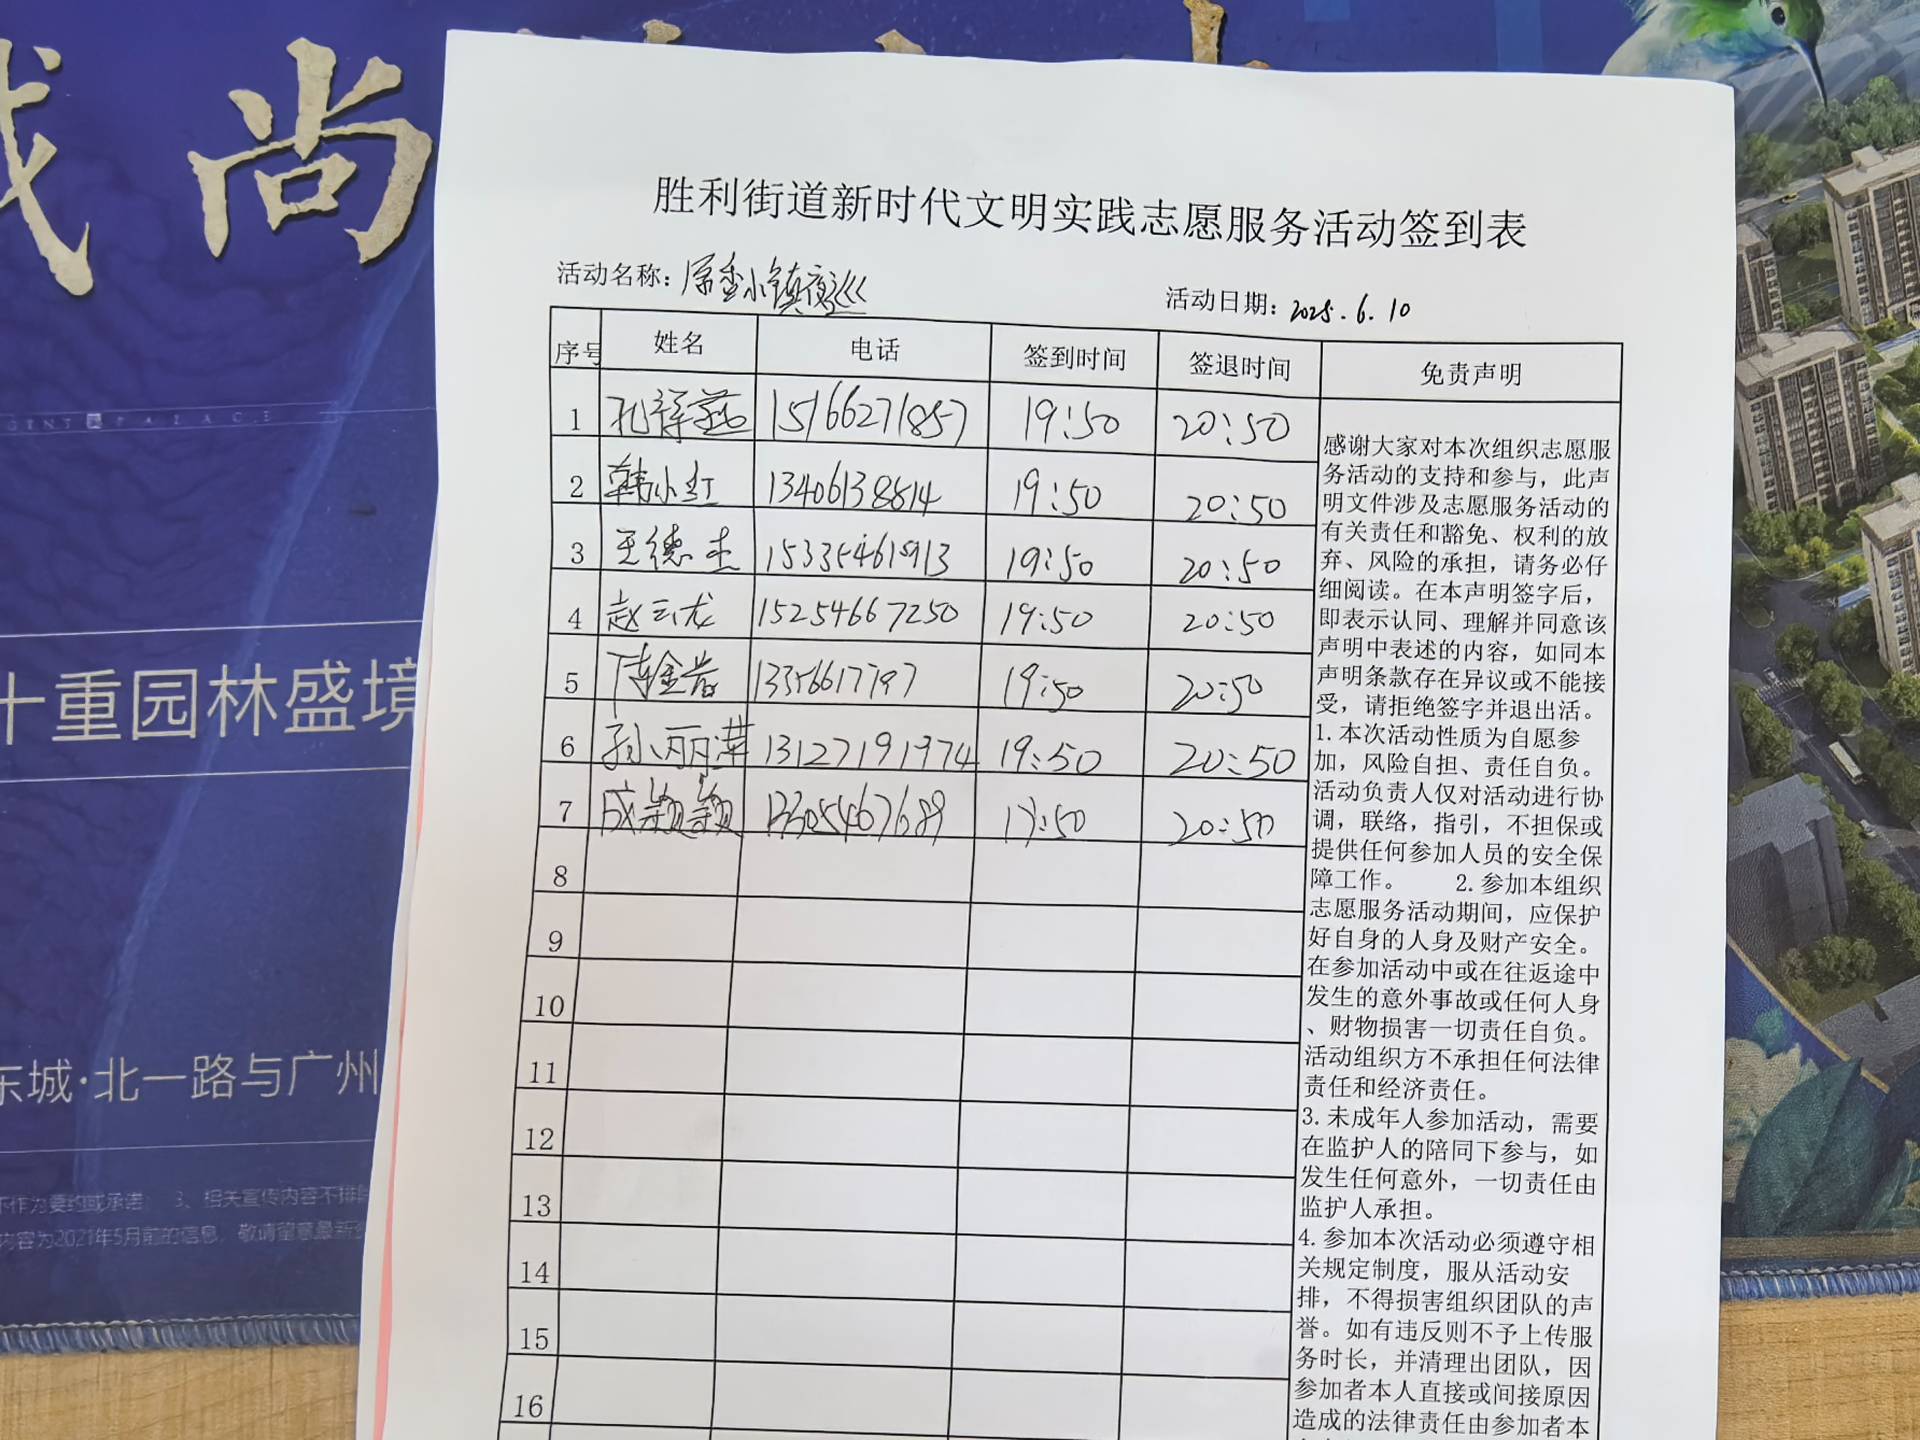 尚
十重园林盛境
东城·北一路与广州
不作为要约或承诺 3、相关宣传内容不排除
内容为2021年5月前的信息，敬请留意最新
胜利街道新时代文明实践志愿服务活动签到表
活动名称：小镇夜巡 活动日期：2025.6.10
序号 姓名 电话 签到时间 签退时间 免责声明
1 孔祥燕 15166271857 19:50 20:50
2 韩小红 13406138814 19:50 20:50
3 王德杰 15335461913 19:50 20:50
4 赵云龙 15254667250 19:50 20:50
5 19:50 20:50
6 孙丽萍 13127191974 19:50 20:50
7 成颖颖 13305467689 19:50 20:50
8
9
10
11
12
13
14
15
16
感谢大家对本次组织志愿服
务活动的支持和参与，此声
明文件涉及志愿服务活动的
有关责任和豁免、权利的放
弃、风险的承担，请务必仔
细阅读。在本声明签字后，
即表示认同、理解并同意该
声明中表述的内容，如同本
声明条款存在异议或不能接
受，请拒绝签字并退出活。
1.本次活动性质为自愿参
加，风险自担、责任自负。
活动负责人仅对活动进行协
调，联络，指引，不担保或
提供任何参加人员的安全保
障工作。 2.参加本组织
志愿服务活动期间，应保护
好自身的人身及财产安全。
在参加活动中或在往返途中
发生的意外事故或任何人身
、财物损害一切责任自负。
活动组织方不承担任何法律
责任和经济责任。
3.未成年人参加活动，需要
在监护人的陪同下参与，如
发生任何意外，一切责任由
监护人承担。
4.参加本次活动必须遵守相
关规定制度，服从活动安
排，不得损害组织团队的声
誉。如有违反则不予上传服
务时长，并清理出团队，因
参加者本人直接或间接原因
造成的法律责任由参加者本